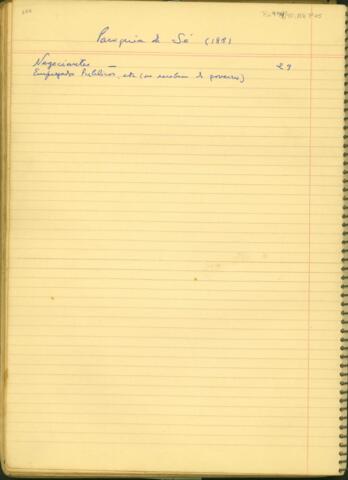 Paroquia da Sé (1881)
Negociantes — 29
Empregados Publicos, etc (os recebem do governo)